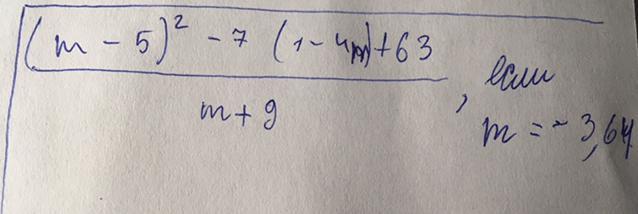 (m - 5)² - 7 (1 - 4m) + 63
m + 9
, если
m = - 3,64